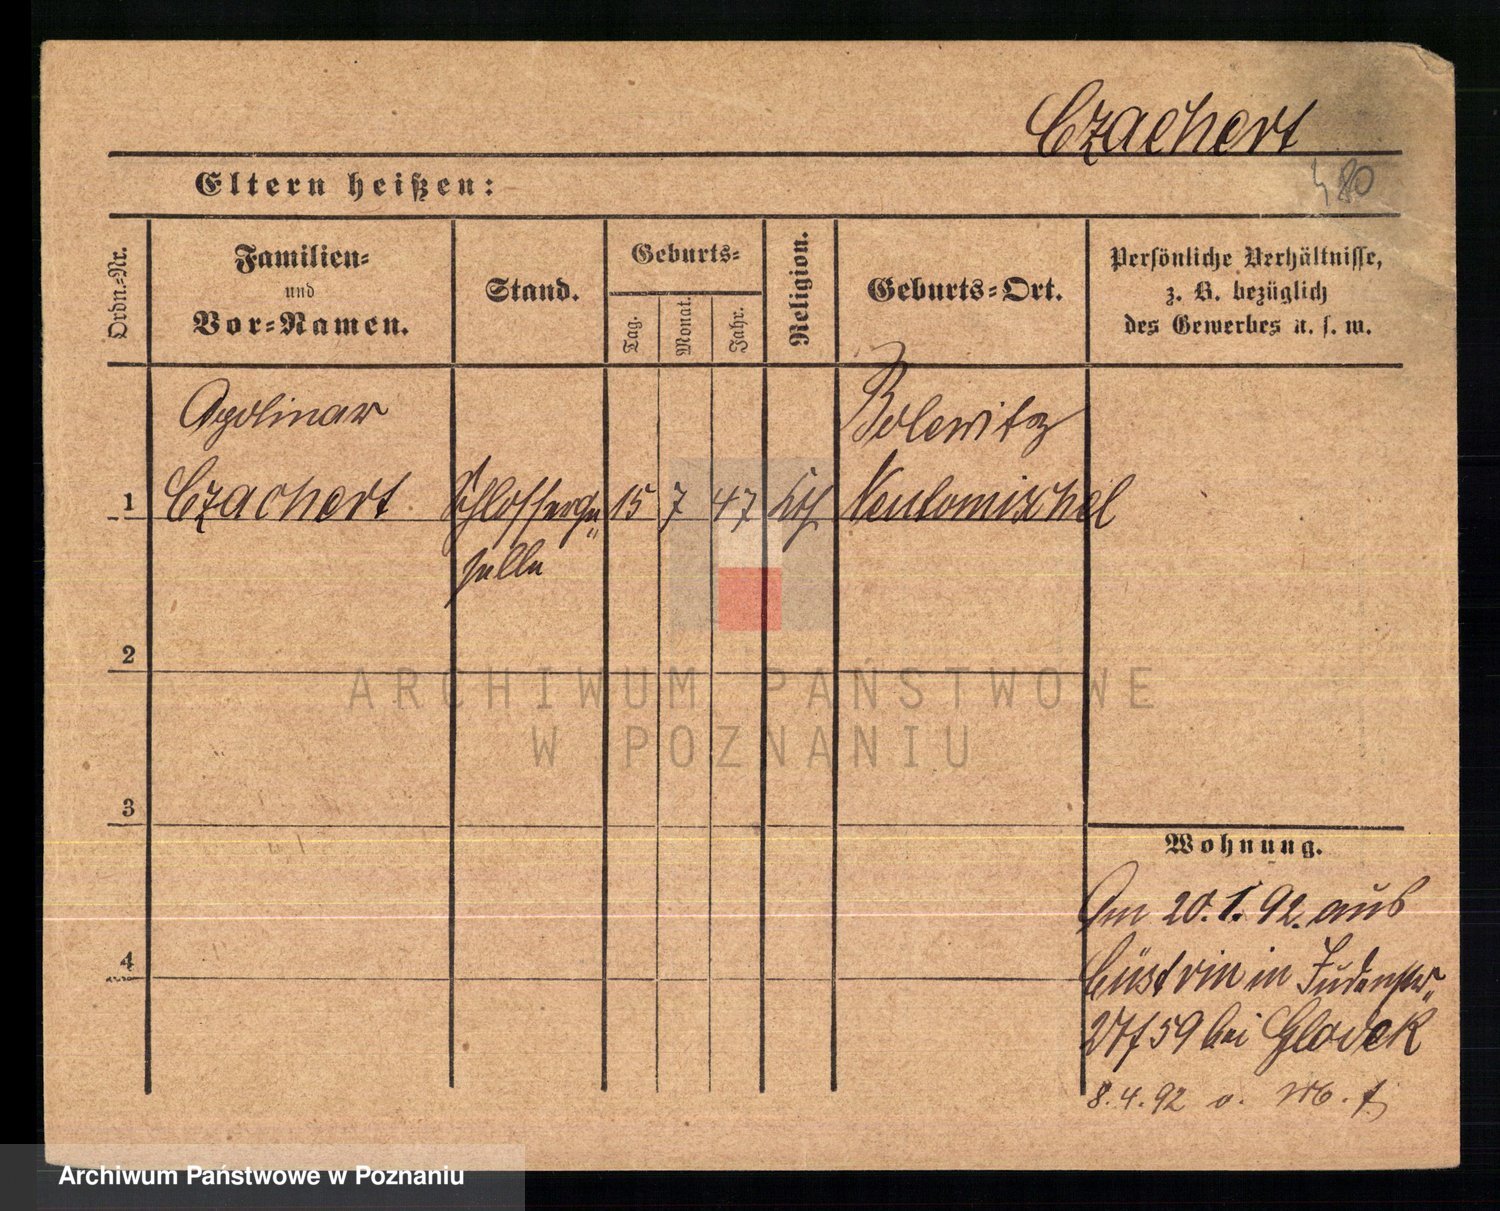 Czachert
Eltern heißen:
480
Ordn.-Nr.
Familien-
und
Vor-Namen.
Stand.
Geburts-
Tag.
Monat.
Jahr.
Religion.
Geburts-Ort.
Persönliche Verhältnisse,
z. B. bezüglich
des Gewerbes u. s. w.
Apolinar
Bolewitz
1
Czachert
Schlosserge-
15
7
47
kth
Neutomischel
selle
2
ARCHIWUM PAŃSTWOWE
W POZNANIU
3
Wohnung.
Am 20.1.92. aus
4
Cüstrin in Judenstr.
27/59 bei Glocek
8.4.92 v.
Archiwum Państwowe w Poznaniu